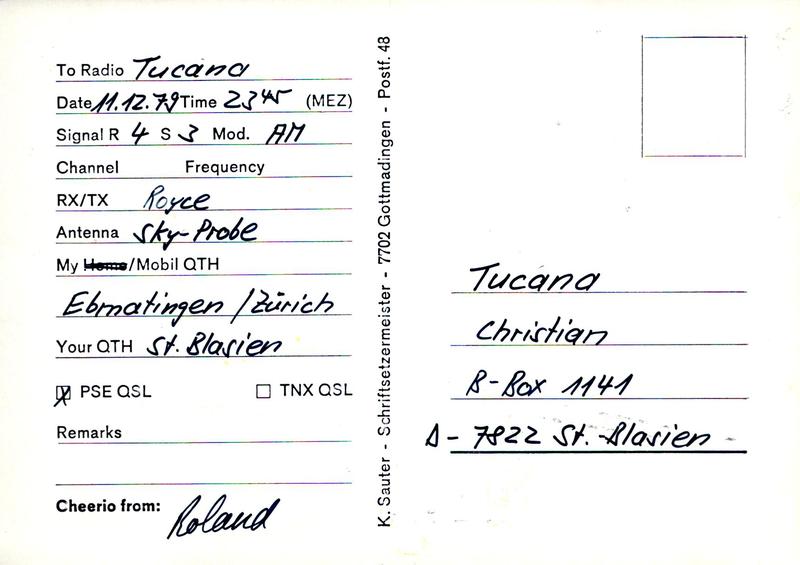 To Radio Tucana
Date 11.12.79 Time 23 45 (MEZ)
Signal R 4 S 3 Mod. AM
Channel Frequency
RX/TX Royce
Antenna Sky-Probe
My Home/Mobil QTH
Ebmatingen / Zürich
Your QTH St. Blasien
PSE QSL TNX QSL
Remarks
Cheerio from: Roland
K. Sauter - Schriftsetzermeister - 7702 Gottmadingen - Postf. 48
Tucana
Christian
B-Box 1141
D - 7822 St. Blasien